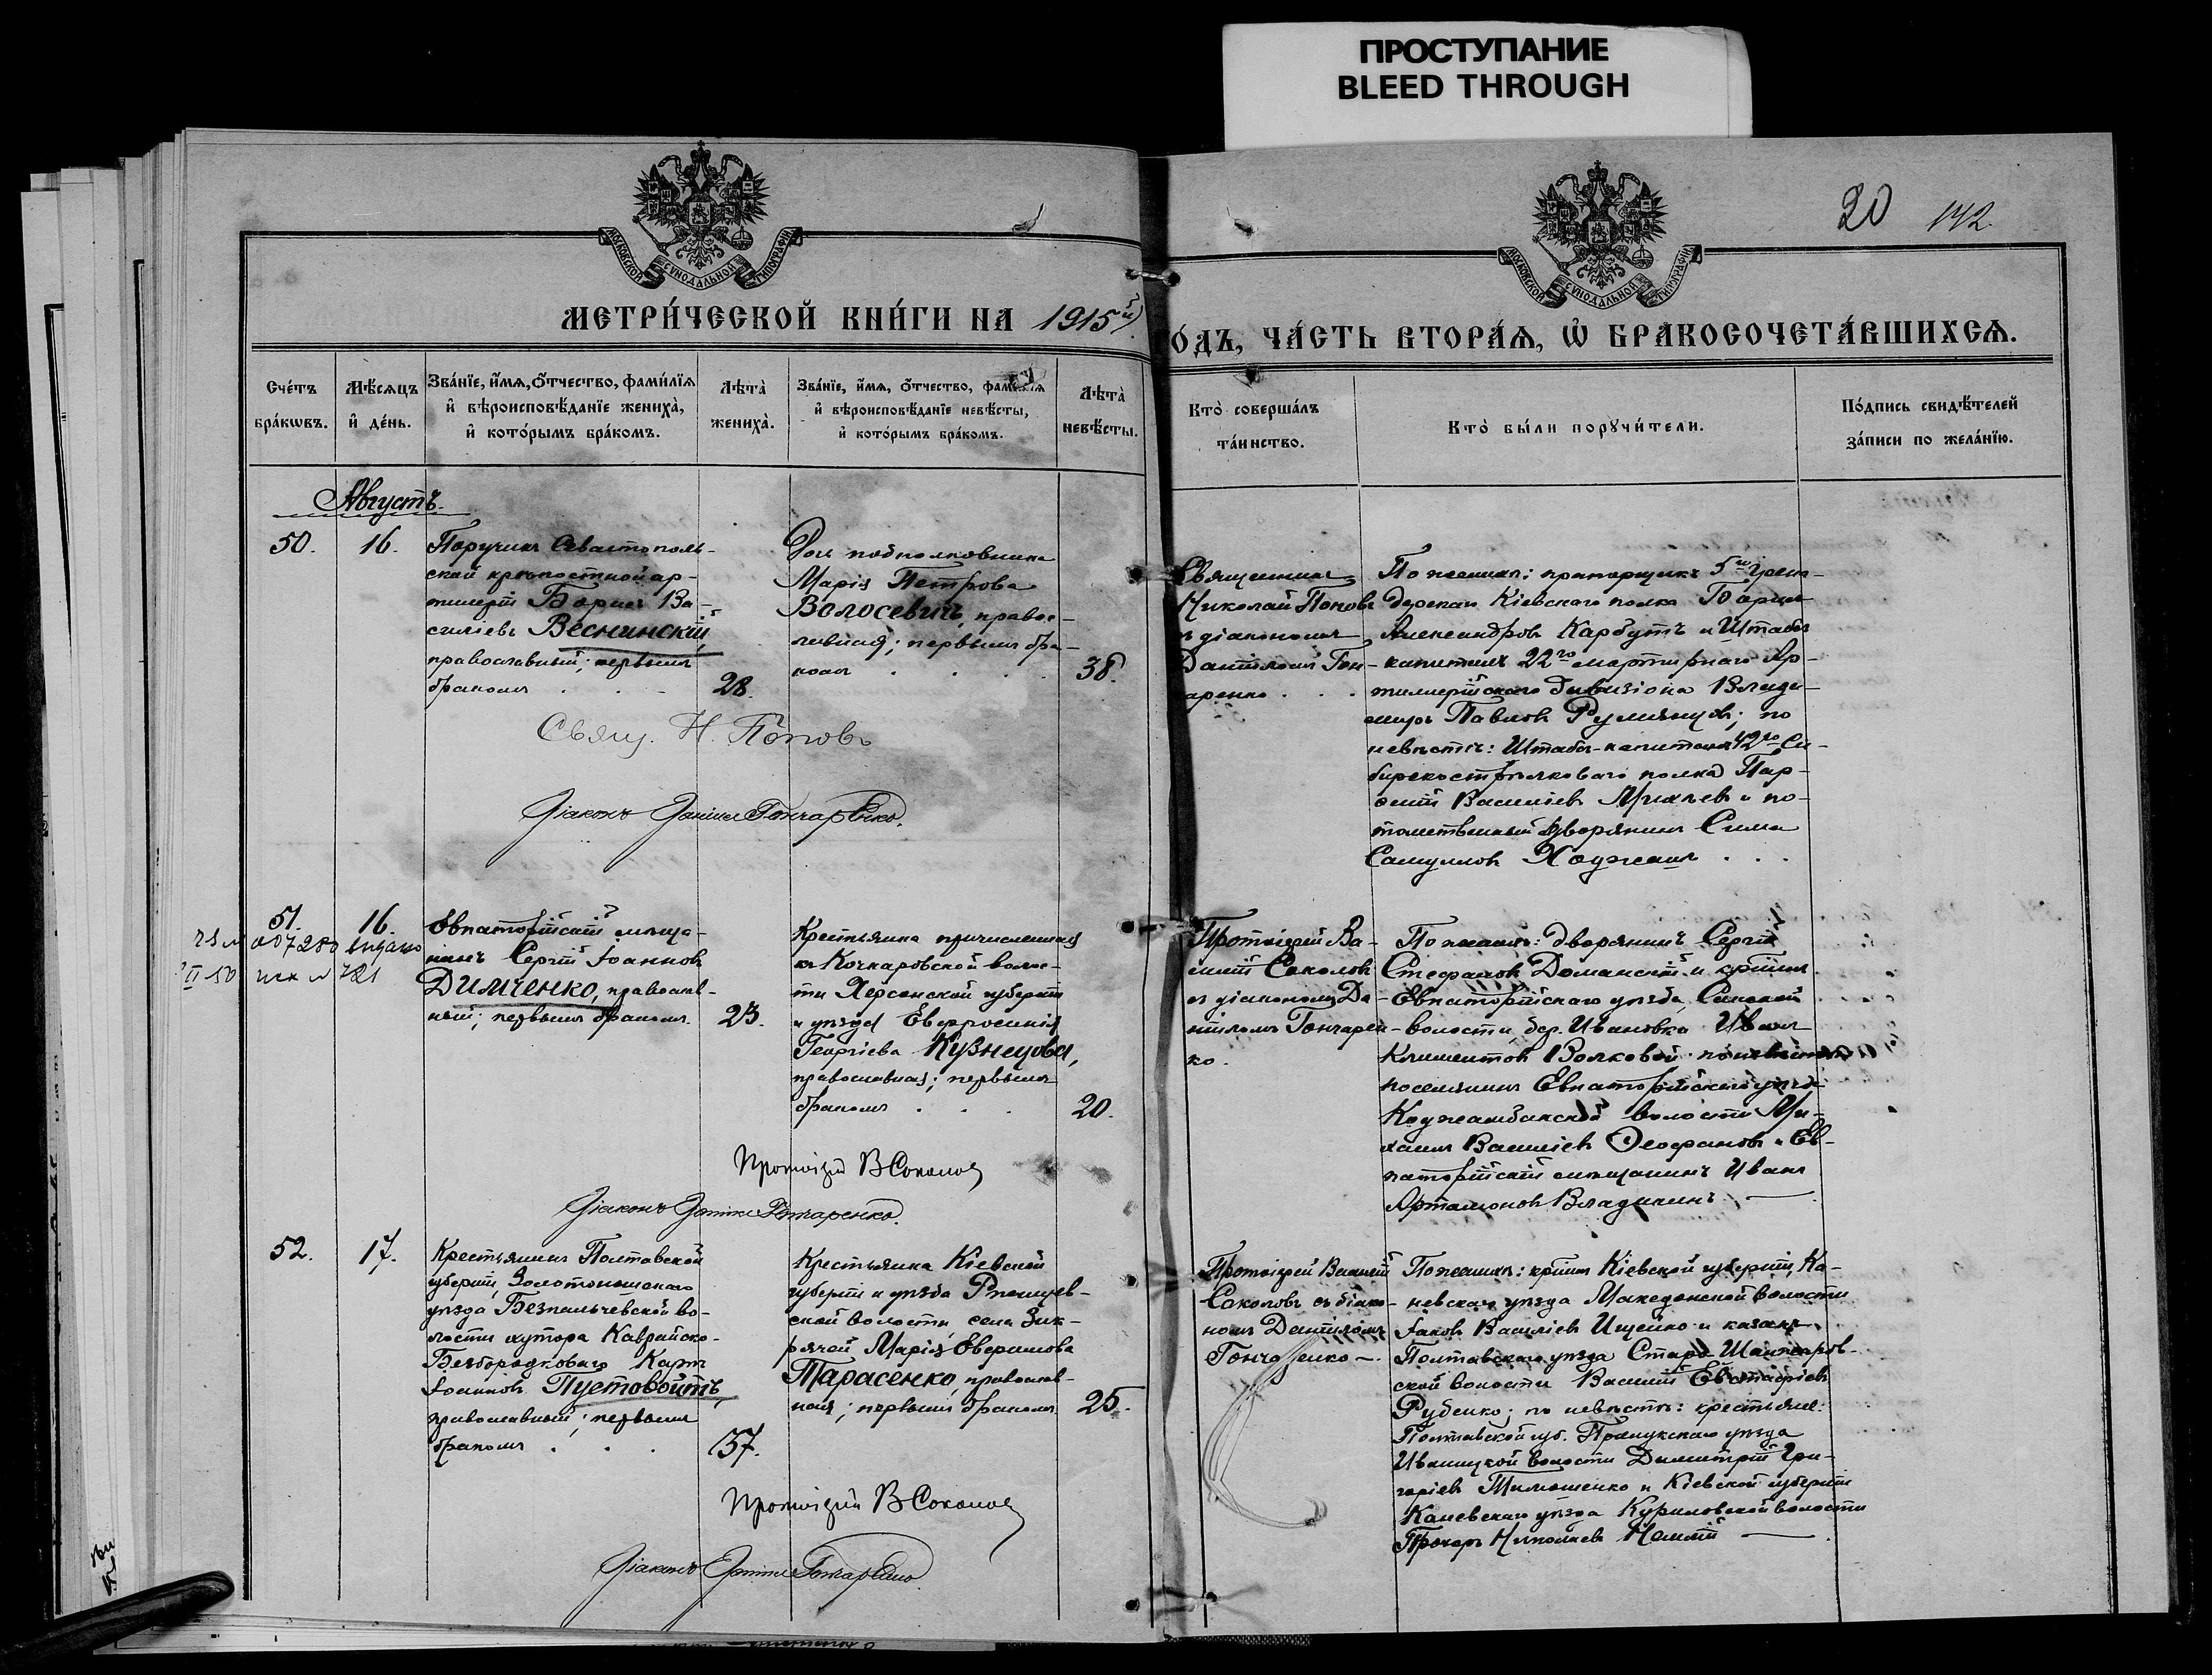 ПРОСТУПАНИЕ
BLEED THROUGH
20 142
МОСКОВСКОЙ СѴНОДАЛЬНОЙ ТИПОГРАФИИ
МОСКОВСКОЙ СѴНОДАЛЬНОЙ ТИПОГРАФИИ
МЕТРИ́ЧЕСКОЙ КНИ́ГИ НА 1915й
О́ДЪ, ЧА́СТЬ ВТОРА́Ѧ, Ѡ҆ БРАКОСОЧЕТА́ВШИХСѦ.
Сче́тъ
бра́кѡвъ.
Мѣ́сѧцъ
и҆ де́нь.
Зва́нїе, и҆́мѧ, ѻ҆́тчество, фами́лїѧ
и҆ вѣроисповѣ́данїе жениха̀,
и҆ кото́рымъ бра́комъ.
Лѣта̀
жениха̀.
Зва́нїе, и҆́мѧ, ѻ҆́тчество, фами́лїѧ
и҆ вѣроисповѣ́данїе невѣ́сты,
и҆ кото́рымъ бра́комъ.
Лѣта̀
невѣ́сты.
Кто̀ соверша́лъ
та́инство.
Кто̀ бы́ли порꙋчи́тели.
По́дпись свидѣ́телей
за́писи по жела́нїю.
Августъ.
50.
16.
Поручикъ Севастополь-
ской крѣпостной ар-
тиллеріи Борисъ Ва-
силіевъ Веснинскій,
православный; первымъ
бракомъ
28.
Дочь подполковника
Марія Петрова
Волосевичъ, правос-
лавная; первымъ бра-
комъ
38.
Священникъ
Николай Поповъ
съ діакономъ
Даніиломъ Гон-
чаренко
По женихѣ: прапорщикъ 5го Грена-
дерскаго Кіевскаго полка
Александровъ Карбутъ и Штабсъ
капитанъ 22го мортирнаго Ар-
тиллерійскаго дивизіона Влади-
миръ Павловъ Румянцовъ; по
невѣстѣ: Штабсъ-капитанъ 42го Си-
бирскострѣлковаго полка Пар-
Василіевъ и по-
томственный дворянинъ Сима
Самуиловъ Ходжашъ
Свящ. Н. Поповъ
Діаконъ Даніилъ Гончаренко.
51.
16.
Евпаторійскій мѣща-
нинъ Сергій Іоанновъ
Димченко, православ-
ный; первымъ бракомъ.
23.
Крестьянка причисленная
къ Кочкаровской волос-
ти Херсонской губерніи
и уѣзда Евфросинія
Георгіева Кузнецова,
православная; первымъ
бракомъ
20.
Протоіерей Ва-
силій Соколовъ
съ діакономъ Да-
ніиломъ Гончарен-
ко.
По женихѣ: дворянинъ Сергій
Стефановъ Доманскій и кр-нинъ
Евпаторійскаго уѣзда, Сакской
волости, дер. Ивановка Иванъ
Климентовъ Волковой; по невѣстѣ:
поселянинъ Евпаторійскаго уѣзда
Коджамбакской волости Ми-
хаилъ Василіевъ Ѳеофановъ и Ев-
паторійскій мѣщанинъ Иванъ
Артамоновъ Владыкинъ
Протоіерей В Соколов
Діаконъ Даніилъ Гончаренко.
52.
17.
Крестьянинъ Полтавской
губерніи, Золотоношскаго
уѣзда Безпальчевской во-
лости хутора Каврайско-
Безбородковаго Карпъ
Іоанновъ Пустовойтъ,
православный; первымъ
бракомъ
37.
Крестьянка Кіевской
губерніи и уѣзда Ржищев-
ской волости, села Зик-
рачей Марія
Тарасенко, православ-
ная; первымъ бракомъ
25.
Протоіерей Василій
Соколовъ съ діако-
номъ Даніиломъ
Гончаренко
По женихѣ: кр-нинъ Кіевской губерніи, Ка-
невскаго уѣзда Македонской волости
Іаковъ Василіевъ Ищенко и казакъ
Полтавскаго уѣзда Старо-Шанжаров-
ской волости Василій Евстафіевъ
Рубенко; по невѣстѣ: крестьяне:
Полтавской губ. Прилукскаго уѣзда
Иваницкой волости Димитрій Гри-
горіевъ Тимошенко и Кіевской губерніи
Каневскаго уѣзда Куриловской волости
Прохоръ Николаевъ
Протоіерей В Соколов
Діаконъ Даніилъ Гончаренко.